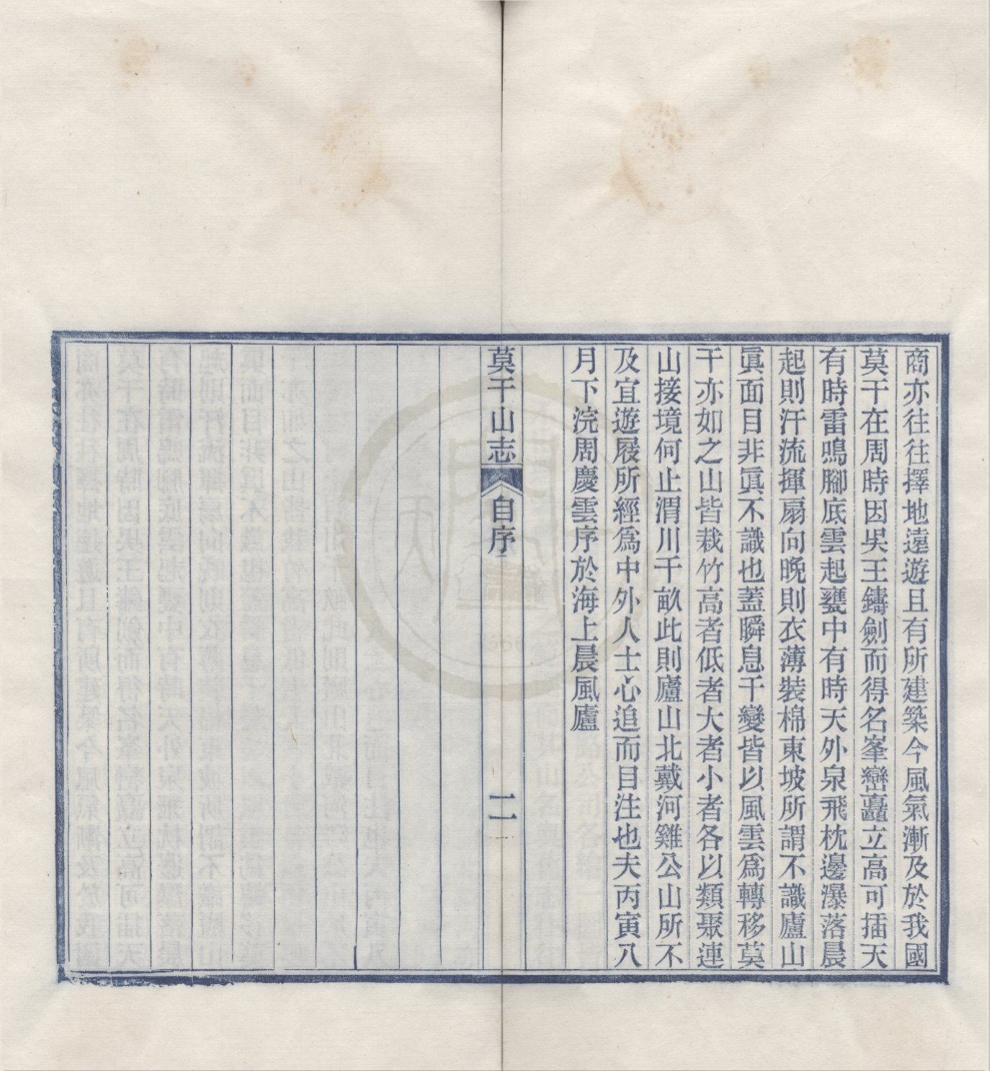 商亦往往擇地遠遊且有所建築今風氣漸及於我國
莫干在周時因吳王鑄劍而得名峯巒矗立高可插天
有時雷鳴腳底雲起甕中有時天外泉飛枕邊瀑落晨
起則汗流揮扇向晚則衣薄裝棉東坡所謂不識廬山
眞面目非眞不識也蓋瞬息千變皆以風雲爲轉移莫
干亦如之山皆栽竹高者低者大者小者各以類聚連
山接境何止渭川千畝此則廬山北戴河雞公山所不
及宜遊屐所經爲中外人士心追而目注也夫丙寅八
月下浣周慶雲序於海上晨風廬
莫干山志
自序
二